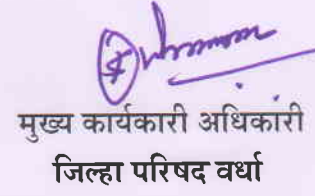 मुख्य कार्यकारी अधिकारी
जिल्हा परिषद वर्धा